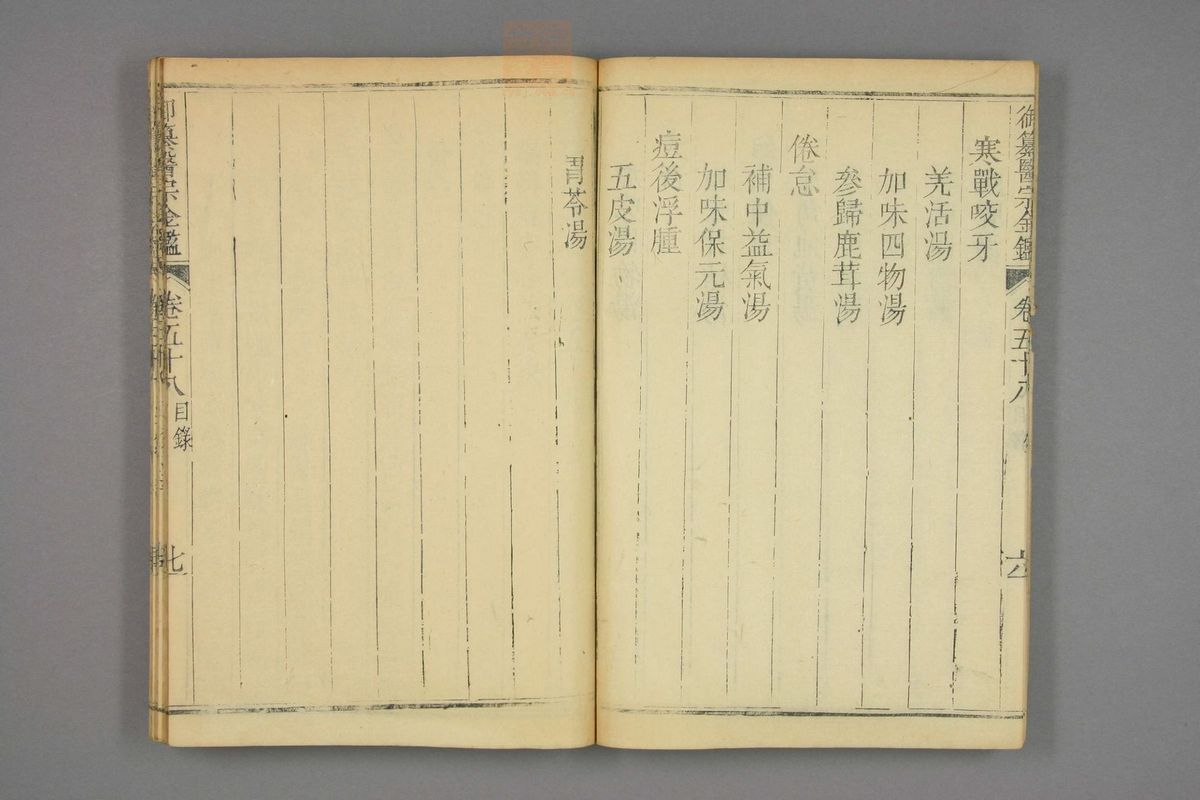 御纂醫宗金鑑
卷五十八
六
寒戰咬牙
羌活湯
加味四物湯
參歸鹿茸湯
倦怠
補中益氣湯
加味保元湯
痘後浮腫
五皮湯
胃苓湯
御纂醫宗金鑑
卷五十八
目錄
七